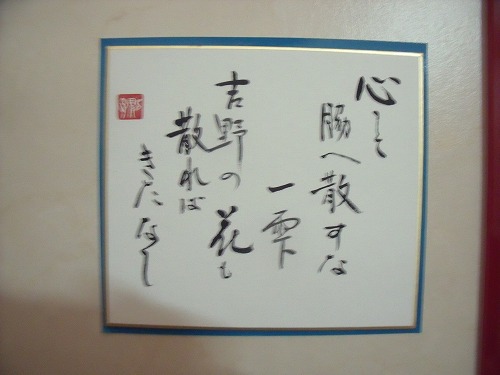 心して
脇へ散すな
一雫
吉野の花も
散れば
きたなし